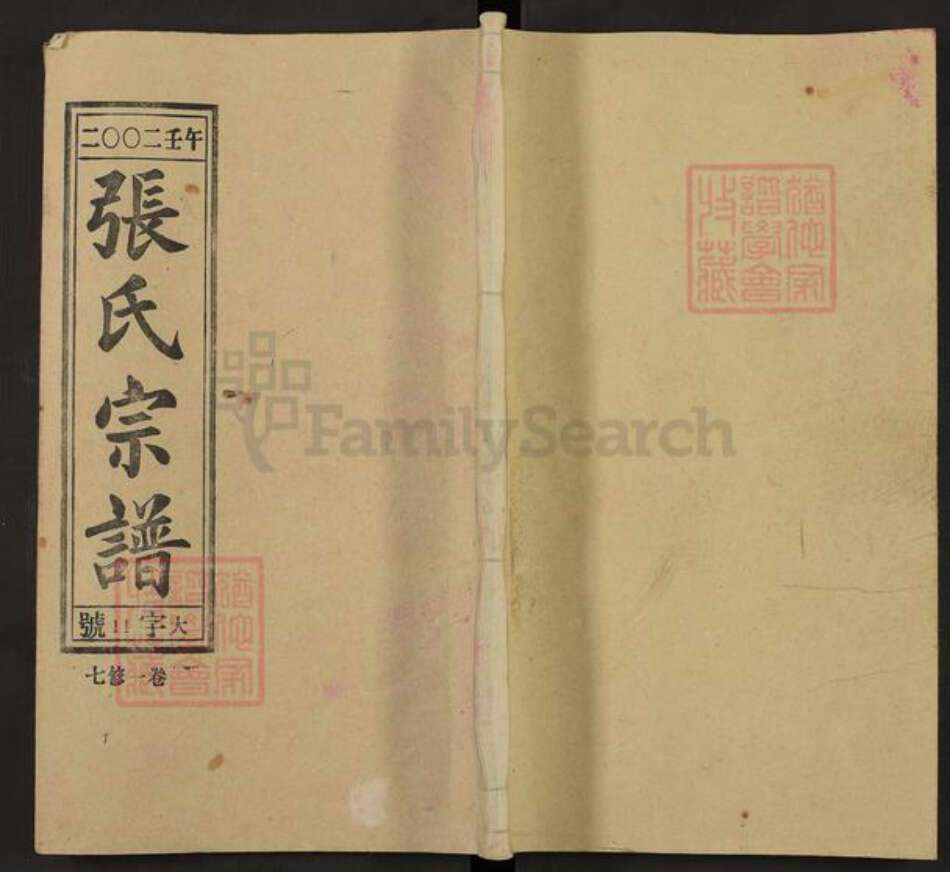 二〇〇二壬午
張氏宗譜
號!!字大
七修一卷
猶他家
譜學會
收藏
FamilySearch
猶他家
譜學會
收藏